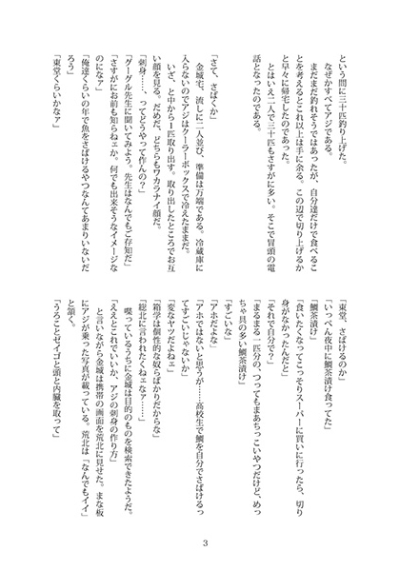 という間に三十匹釣り上げた。
なぜかすべてアジである。
まだまだ釣れそうではあったが、自分達だけで食べるこ
とを考えるとこれ以上は手に余る。この辺で切り上げるか
と早々に帰宅したのであった。
とはいえ二人で三十匹もさすがに多い。そこで冒頭の電
話となったのである。
「さて、さばくか」
金城宅、流しに二人並び、準備は万端である。冷蔵庫に
入らないのでアジはクーラーボックスで冷えたままだ。
いざ、と中から1匹取り出す。取り出したところでお互
い顔を見る。だめだ、どちらもワカラナイ顔だ。
「刺身……、ってどうやって作んの？」
「グーグル先生に聞いてみよう。先生はなんでもご存知だ」
「さすがにお前も知らねェか。何でも出来そうなイメージな
のになァ」
「俺達くらいの年で魚をさばけるやつなんてあまりいないだ
ろう」
「東堂くらいかなァ」
「東堂、さばけるのか」
「いっぺん夜中に鯛茶漬け食ってた」
「鯛茶漬け」
「食いたくなってこっそりスーパーに買いに行ったら、切り
身がなかったんだと」
「それで自分で？」
「まるまる一匹分の、つってもまあちっこいやつだけど、めっ
ちゃ具の多い鯛茶漬け」
「すごいな」
「アホだよな」
「アホではないと思うが……高校生で鯛を自分でさばけるっ
てすごいじゃないか」
「変なヤツだよねェ」
「箱学は個性的な奴らばかりだからな」
「総北に言われたくねェなァ……」
喋っているうちに金城は目的のものを検索できたようだ。
「ええとこれでいいか。アジの刺身の作り方」
と言いながら金城は携帯の画面を荒北に見せた。まな板
にアジが乗った写真が載っている。荒北は「なんでもイイ」
と頷く。
「うろことゼイゴと頭と内臓を取って」
3